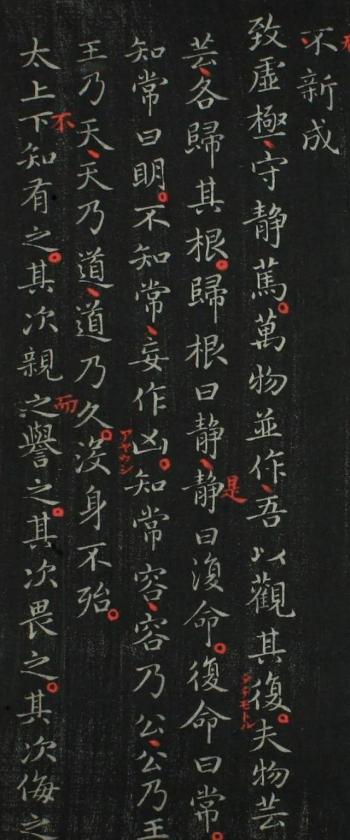 不新成
致虚極守静萬萬物並作吾以觀其復夫物芸
芸各歸其根歸根曰静静曰復命復命曰常
知常曰明不知常妄作凶知常容容乃公公乃王
王乃天天乃道道乃久没身不殆
太上下知有之其次親之譽之其次畏之其次侮之
是
アヤウシ
不
而